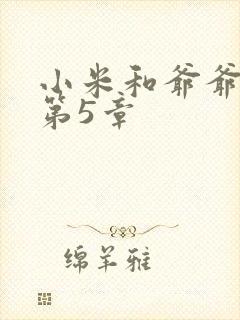 小米和爷爷
第5章
绵羊雅